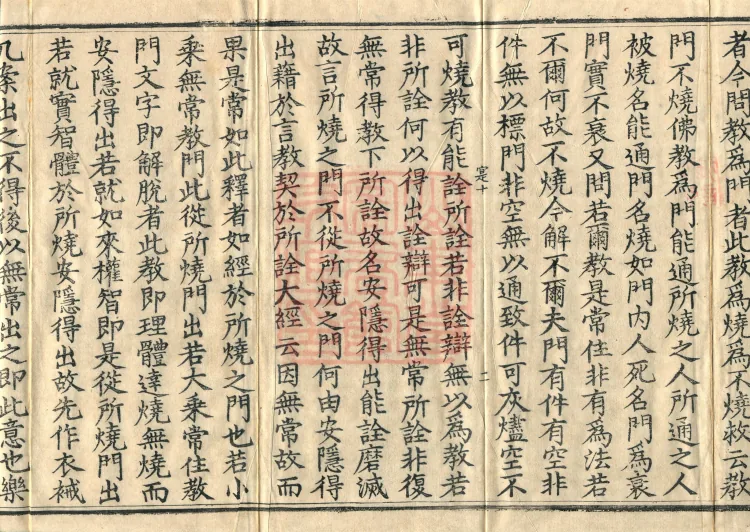 者今問教爲門者此教爲燒爲不燒救云教
門不燒佛教爲門能通所燒之人所通之人
被燒名能通門名燒如門內人死名門爲衰
門實不衰又問若爾教是常住非有爲法若
不爾何故不燒今解不爾夫門有件有空非
件無以標門非空無以通致件可灰燼空不
寔十 二
可燒教有能詮所詮若非詮辯無以爲教若
非所詮何以得出詮辯可是無常所詮非復
無常得教下所詮故名安隱得出能詮磨滅
故言所燒之門不從所燒之門何由安隱得
出籍於言教契於所詮大經云因無常故而
果是常如此釋者如經於所燒之門也若小
乘無常教門此從所燒門出若大乘常住教
門文字即解脫者此教即理體達燒無燒而
安隱得出若就如來權智即是從所燒門出
若就實智體於所燒安隱得出故先作衣裓
几案出之不得後以無常出之即此意也樂